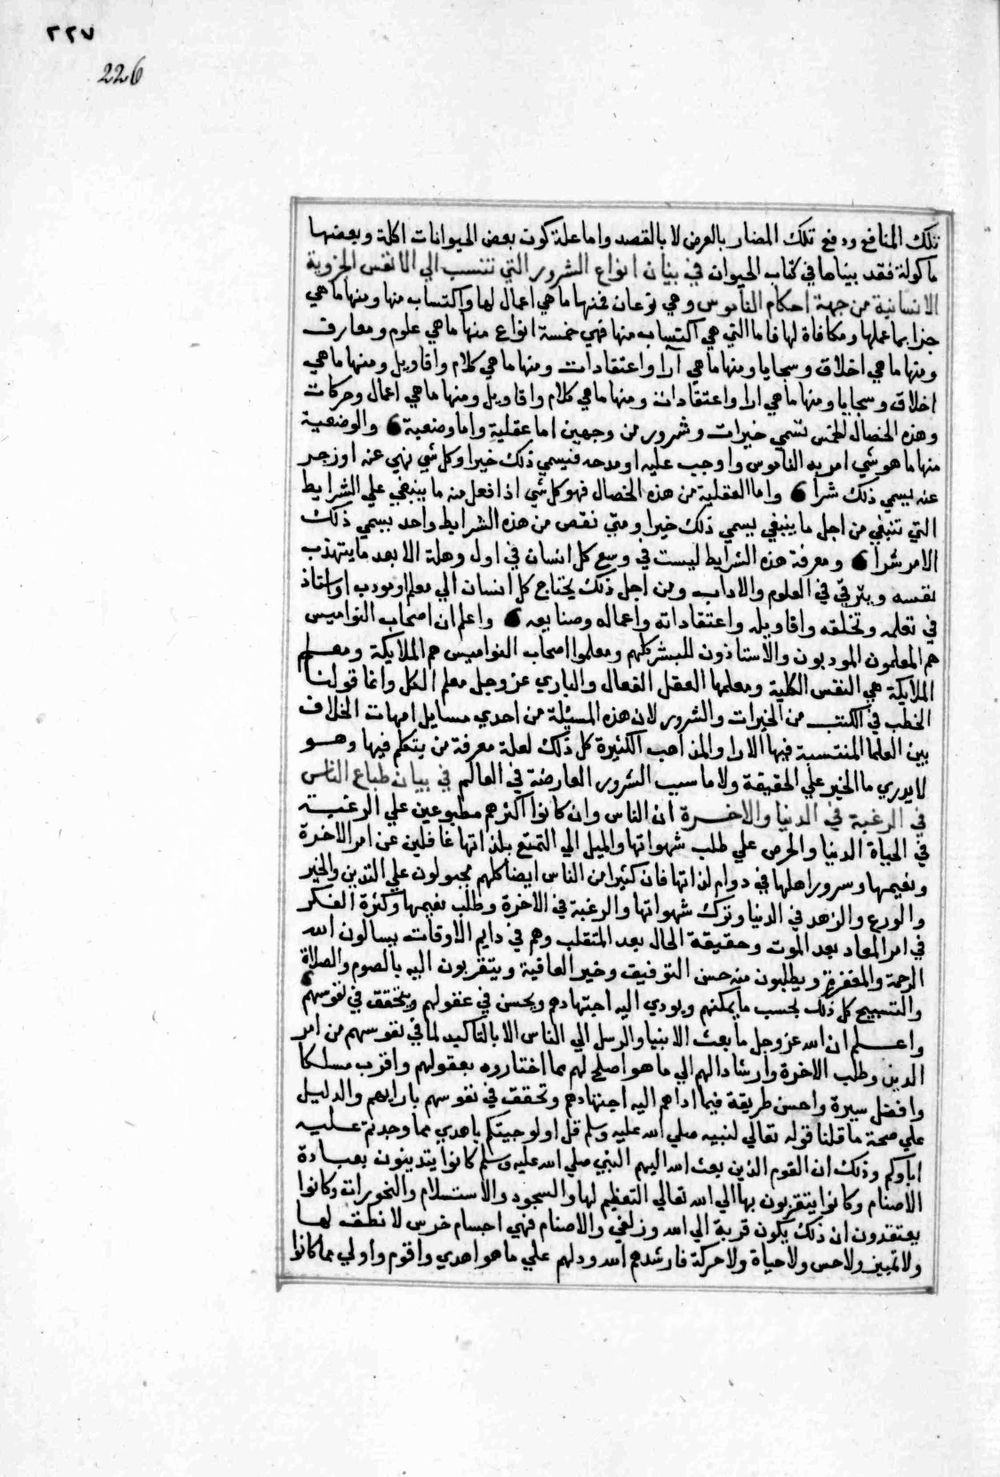 ٢٢٧
226
تلك المنافع ودفع تلك المضار بالعرض لا بالقصد واما علة كون بعض الحيوانات اكلة وبعضها
ماكولة فقد بيناها في كتاب الحيوان في بيان انواع الشرور التي تنتسب الي الانفس الجزوية
الانسانية من جهة احكام الناموس وهي نوعان فمنها ما هي اعمال لها واكتساب منها ومنها ما هي
جزا بما عملها ومكافاة لها فاما التي هي اكتساب منها فهي خمسة انواع منها ما هي علوم ومعارف
ومنها ما هي اخلاق وسجايا ومنها ما هي آرا واعتقادات ومنها ما هي كلام واقاويل ومنها ما هي
اخلاق وسجايا ومنها ما هي ارا واعتقادات ومنها ما هي كلام واقاويل ومنها ما هي اعمال وحركات
وهذه الخصال الخمس تسمي خيرات وشرور من وجهين اما عقلية واما وضعية 6 والوضعية
منها ما هو شي امر به الناموس واوجب عليه او مدحه فيسمي ذلك خيرا وكل شي نهي عنه او زجر
عنه يسمي ذلك شرا 6 واما العقلية من هذه الخصال فهو كل شي اذا فعل منه ما ينبغي علي الشرايط
التي تنبغي من اجل ما ينبغي يسمي ذلك خيرا ومتي نقص من هذه الشرايط واحد يسمي ذلك
الامر شرا 6 ومعرفة هذه الشرايط ليست في وسع كل انسان في اول وهلة الا بعد ما يتهذب
نفسه ويترقي في العلوم والاداب ومن اجل ذلك يحتاج كل انسان الي معلم او مودب او استاذ
في تعلمه وتخلقه واقاويله واعتقاداته واعماله وصنايعه 6 واعلم ان اصحاب النواميس
هم المعلمون المودبون والاستاذون للبشر كلهم ومعلموا اصحاب النواميس هم الملايكة ومعلم
الملايكة هي النفس الكلية ومعلمها العقل الفعال والباري عز وجل معلم الكل وانما قولنا
الخطب في الكتب من الخيرات والشرور لان هذه المسئلة من احدي مسايل امهات الخلاف
بين العلما المنتسبة فيها الارا والمذاهب الكثيرة كل ذلك لعلة معرفة من يتكلم فيها وهو
لا يدري ما الخير علي الحقيقة ولا ما سبب الشرور العارضة في العالم في بيان طباع الناس
في الرغبة في الدنيا والاخرة ان الناس وان كانوا اكثرهم مطبوعين علي الرغبة
في الحياة الدنيا والحرص علي طلب شهواتها والميل الي التمتع بلذاتها غافلين عن امر الاخرة
ونعيمها وسرور اهلها في دوام لذاتها فان كثيرا من الناس ايضا كلهم مجبولون علي التدين والخير
والورع والزهد في الدنيا وترك شهواتها والرغبة في الاخرة وطلب نعيمها وكثرة الفكر
في امر المعاد بعد الموت وحقيقة الحال بعد المنقلب وهم في دايم الاوقات يسالون الله
الرحمة والمغفرة ويطلبون منه حسن التوفيق وخير العافية ويتقربون اليه بالصوم والصلاة
والتسبيح كل ذلك بحسب ما يمكنهم ويودي اليه اجتهادهم ويحسن في عقولهم ويتحقق في نفوسهم 6
واعلم ان الله عز وجل ما بعث الانبيا والرسل الي الناس الا بالتاكيد لما في نفوسهم من امر
الدين وطلب الاخرة وارشادا لهم الي ما هو اصلح لهم مما اختاروه بعقولهم واقرب مسلكا
وافضل سيرة واحسن طريقة فيما اداهم اليه اجتهادهم وتحقق في نفوسهم بارايهم والدليل
علي صحة ما قلنا قوله تعالي لنبيه صلي الله عليه وسلم قل اولو جيتكم باهدي مما وجدتم عليه
اباوكم وذلك ان القوم الذين بعث الله اليهم النبي صلي الله عليه وسلم كانوا يتدينون بعبادة
الاصنام وكانوا يتقربون بها الي الله تعالي التعظيم لها والسجود والاستسلام والبخورات وكانوا
يعتقدون ان ذلك يكون قربة الي الله وزلفي والاصنام فهي اجسام خرس لا نطق لها
ولا تمييز ولا حس ولا حياة ولا حركة فارشدهم الله ودلهم علي ما هو اهدي واقوم واولي مما كانوا